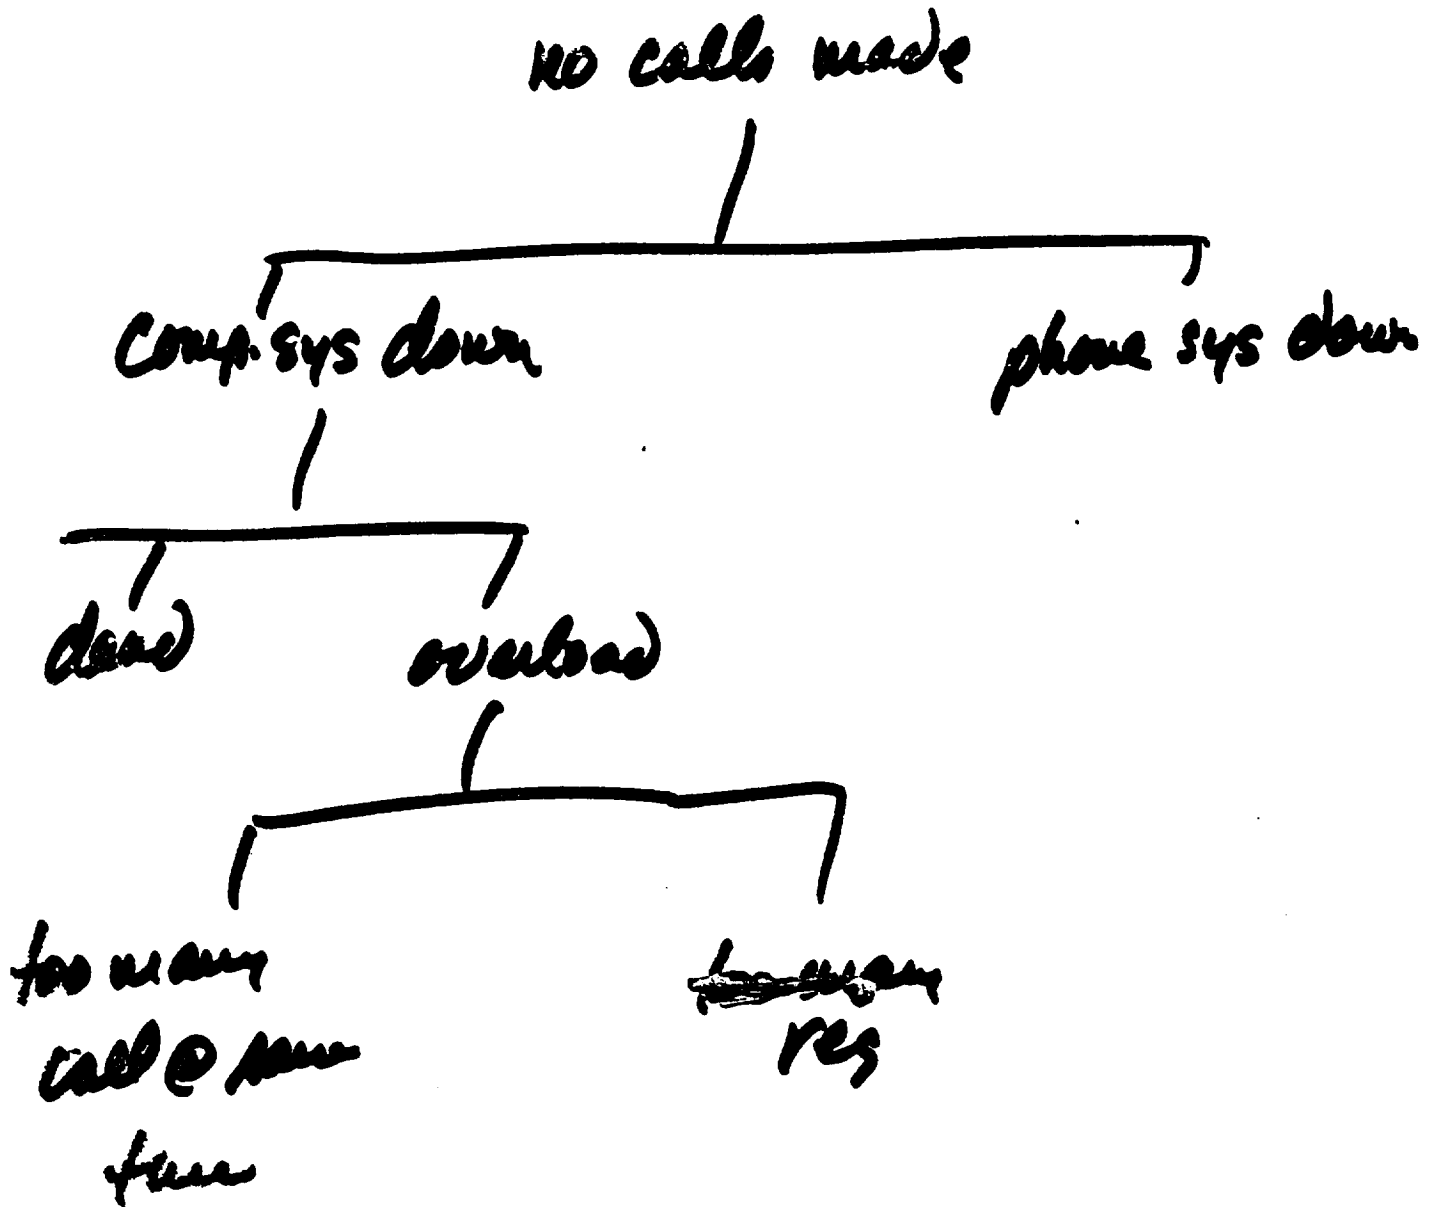 no calls made
comp. sys down
phone sys down
dead
overload
too many
call @ same
time
too many
reg